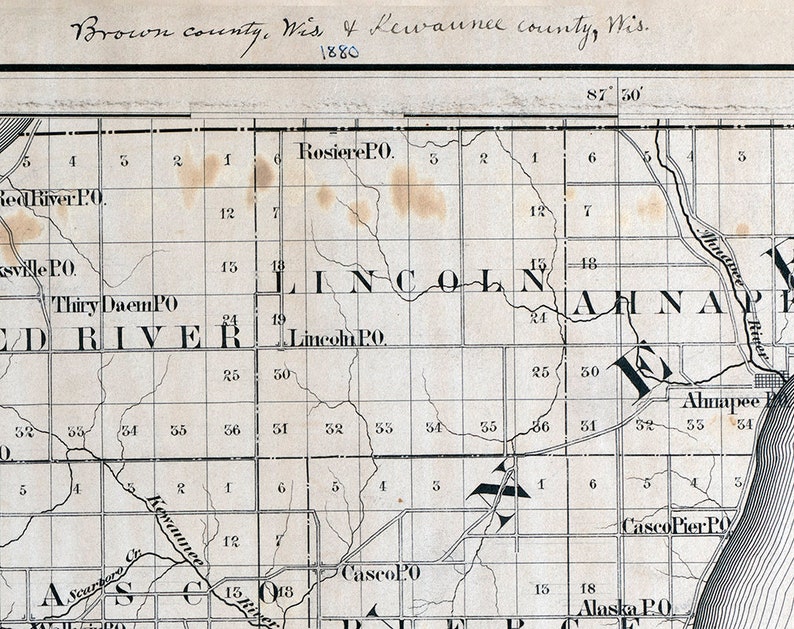 Brown county, Wis & Kewaunee county, Wis.
1880
87° 30'
5 4 3 2 1 6 Rosiere P.O. 3 2 1 6 5 4 3
Red River P.O. 12 7 12 7
Ahnapee River
ksville P.O. 13 18 13 18
LINCOLN
Thiry Daem P.O
AHNAP
24 19 24
ED RIVER Lincoln P.O.
25 30 25 30
E
Ahnapee P.O.
32 33 34 35 36 31 32 33 34 35 36 31 32 33 34
O.
5 4 3 2 1 6 5 4 3 1 6 5 4 3
A
Kewaunee River
Casco Pier P.O.
12 7
Scarboro Cr.
Casco P.O
ASCO 13 18 13 18
Alaska P.O.
PIERCE